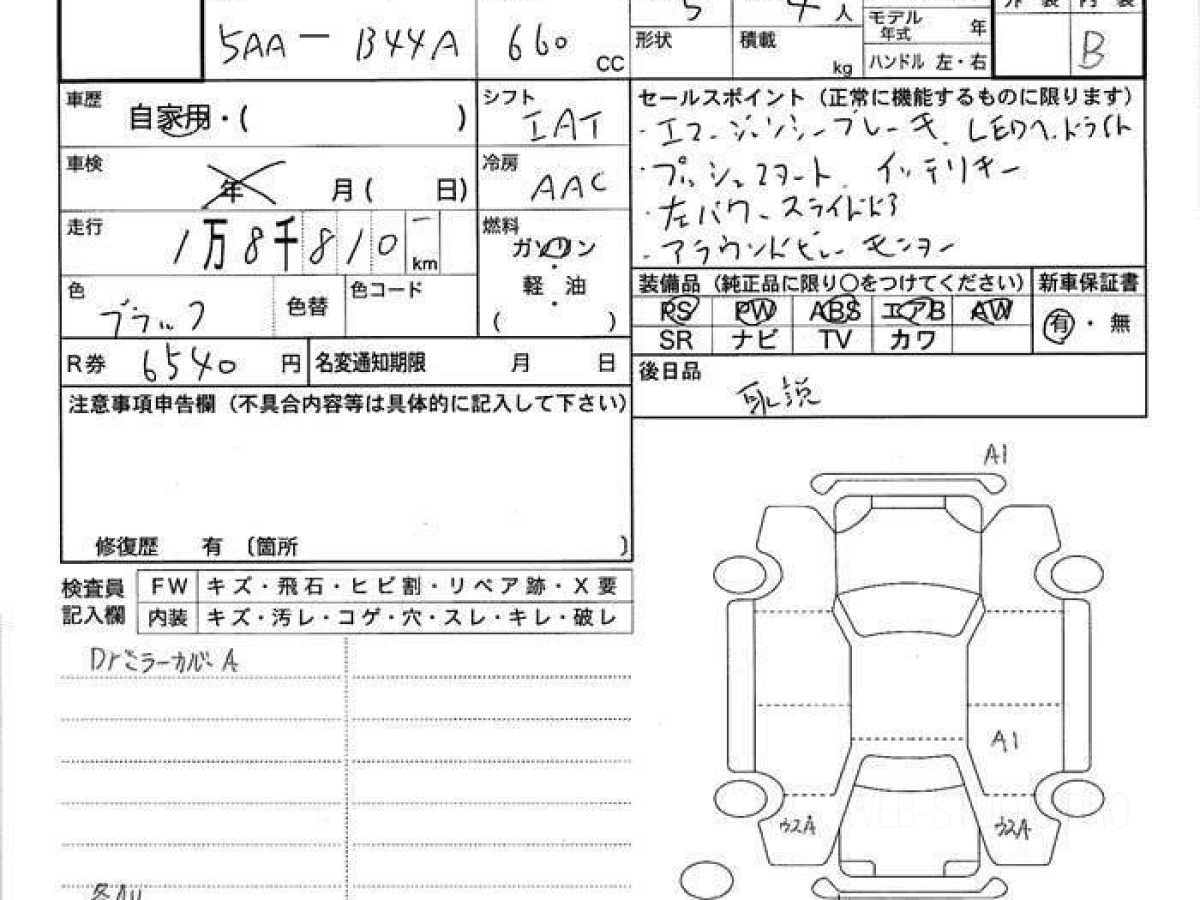 5AA－B44A 660 CC
5 4 人
形状 積載 kg
モデル年式 年
ハンドル 左・右
外装 内装
B
車歴 自家用・( )
シフト IAT
車検 年 月( 日)
冷房 AAC
走行 1万8千810 km
燃料 ガソリン・軽油・( )
色 ブラック 色替 色コード
R券 6540 円 名変通知期限 月 日
セールスポイント（正常に機能するものに限ります）
・エマージェンシーブレーキ、LEDヘッドライト
・プッシュスタート、インテリキー
・左パワースライドドア
・アラウンドビューモニター
装備品（純正品に限り○をつけてください） 新車保証書
PS PW ABS エアB AW 有・無
SR ナビ TV カワ
後日品
取説
注意事項申告欄（不具合内容等は具体的に記入して下さい）
修復歴 有 〔箇所 〕
検査員記入欄
FW キズ・飛石・ヒビ割・リペア跡・X要
内装 キズ・汚レ・コゲ・穴・スレ・キレ・破レ
DrミラーカバーA
A1
A1
ウスA ウスA